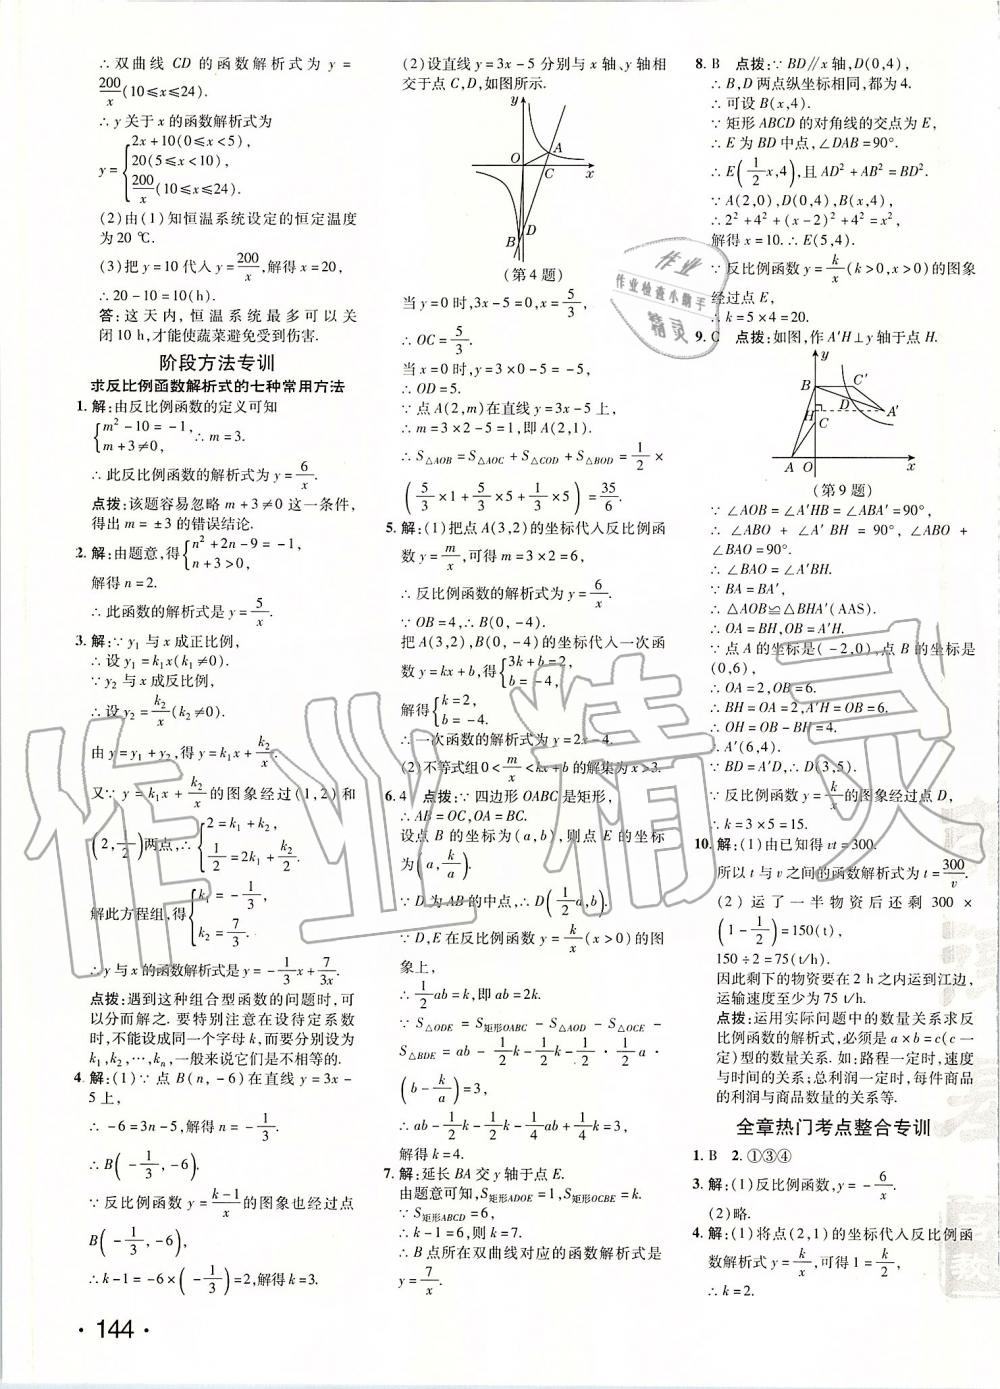 ∴双曲线 CD 的函数解析式为 y =
200/x (10≤x≤24).
∴y 关于 x 的函数解析式为
y = { 2x+10(0≤x<5),
20(5≤x<10),
200/x (10≤x≤24).
(2)由(1)知恒温系统设定的恒定温度
为 20 ℃.
(3)把 y=10 代入 y=200/x,解得 x=20,
∴20-10=10(h).
答:这天内,恒温系统最多可以关
闭 10 h,才能使蔬菜避免受到伤害.
阶段方法专训
求反比例函数解析式的七种常用方法
1. 解:由反比例函数的定义可知
{ m²-10=-1,
m+3≠0, ∴m=3.
∴此反比例函数的解析式为 y=6/x.
点拨:该题容易忽略 m+3≠0 这一条件,
得出 m=±3 的错误结论.
2. 解:由题意,得{ n²+2n-9=-1,
n+3>0,
解得 n=2.
∴此函数的解析式是 y=5/x.
3. 解:∵y₁ 与 x 成正比例,
∴设 y₁=k₁x(k₁≠0).
∵y₂ 与 x 成反比例,
∴设 y₂=k₂/x(k₂≠0).
由 y=y₁+y₂,得 y=k₁x+k₂/x.
又∵y=k₁x+k₂/x 的图象经过(1,2)和
(2,1/2)两点,∴{ 2=k₁+k₂,
1/2=2k₁+k₂/2.
解此方程组,得{ k₁=-1/3,
k₂=7/3.
∴y 与 x 的函数解析式是 y=-1/3x+7/3x.
点拨:遇到这种组合型函数的问题时,可
以分而解之.要特别注意在设待定系数
时,不能设成同一个字母 k,而要分别设为
k₁,k₂,…,kₙ,一般来说它们是不相等的.
4. 解:(1)∵点 B(n,-6)在直线 y=3x-
5 上,
∴-6=3n-5,解得 n=-1/3.
∴B(-1/3,-6).
∵反比例函数 y=k-1/x 的图象也经过点
B(-1/3,-6),
∴k-1=-6×(-1/3)=2,解得 k=3.
· 144 ·
(2)设直线 y=3x-5 分别与 x 轴、y 轴相
交于点 C,D,如图所示.
y
O
A
C
x
B
D
(第 4 题)
当 y=0 时,3x-5=0,x=5/3,
∴OC=5/3.
当 x=0 时,y=3×0-5=-5,
∴OD=5.
∵点 A(2,m)在直线 y=3x-5 上,
∴m=3×2-5=1,即 A(2,1).
∴S△AOB=S△AOC+S△COD+S△BOD=1/2×
(5/3×1+5/3×5+1/3×5)=35/6.
5. 解:(1)把点 A(3,2)的坐标代入反比例函
数 y=m/x,可得 m=3×2=6,
∴反比例函数的解析式为 y=6/x.
∵OB=4,∴B(0,-4).
把 A(3,2),B(0,-4)的坐标代入一次函
数 y=kx+b,得{ 3k+b=2,
b=-4,
解得{ k=2,
b=-4.
∴一次函数的解析式为 y=2x-4.
(2)不等式组 0<m/x<kx+b 的解集为 x>3.
6. 4 点拨:∵四边形 OABC 是矩形,
∴AB=OC,OA=BC.
设点 B 的坐标为(a,b),则点 E 的坐标
为(a,k/a).
∵D 为 AB 的中点,∴D(1/2a,b).
∵D,E 在反比例函数 y=k/x(x>0)的图
象上,
∴1/2ab=k,即 ab=2k.
∵S△ODE=S矩形OABC-S△AOD-S△OCE-
S△BDE=ab-1/2k-1/2k-1/2·1/2a·
(b-k/a)=3,
∴ab-1/2k-1/2k-1/4ab+1/4k=3.
解得 k=4.
7. 解:延长 BA 交 y 轴于点 E.
由题意可知,S矩形ADOE=1,S矩形OCBE=k.
∵S矩形ABCD=6,
∴k-1=6,则 k=7.
∴B 点所在双曲线对应的函数解析式是
y=7/x.
8. B 点拨:∵BD∥x 轴,D(0,4),
∴B,D 两点纵坐标相同,都为 4.
∴可设 B(x,4).
∵矩形 ABCD 的对角线的交点为 E,
∴E 为 BD 中点,∠DAB=90°.
∴E(1/2x,4),且 AD²+AB²=BD².
∵A(2,0),D(0,4),B(x,4),
∴2²+4²+(x-2)²+4²=x²,
解得 x=10.∴E(5,4).
∵反比例函数 y=k/x(k>0,x>0)的图象
经过点 E,
∴k=5×4=20.
9. C 点拨:如图,作 A′H⊥y 轴于点 H.
y
B
C′
D
A′
H
C
A
O
x
(第 9 题)
∵∠AOB=∠A′HB=∠ABA′=90°,
∴∠ABO+∠A′BH=90°,∠ABO+
∠BAO=90°.
∴∠BAO=∠A′BH.
∵BA=BA′,
∴△AOB≌△BHA′(AAS).
∴OA=BH,OB=A′H.
∵点 A 的坐标是(-2,0),点 B 的坐标是
(0,6),
∴OA=2,OB=6.
∴BH=OA=2,A′H=OB=6.
∴OH=OB-BH=4.
∴A′(6,4).
∵BD=A′D,∴D(3,5).
∵反比例函数 y=k/x的图象经过点 D,
∴k=3×5=15.
10. 解:(1)由已知得 vt=300.
所以 t 与 v 之间的函数解析式为 t=300/v.
(2)运了一半物资后还剩 300×
(1-1/2)=150(t),
150÷2=75(t/h).
因此剩下的物资要在 2 h 之内运到江边,
运输速度至少为 75 t/h.
点拨:运用实际问题中的数量关系求反
比例函数的解析式,必须是 a×b=c(c 一
定)型的数量关系.如:路程一定时,速度
与时间的关系;总利润一定时,每件商品
的利润与商品数量的关系等.
全章热门考点整合专训
1. B 2. ①③④
3. 解:(1)反比例函数,y=-6/x.
(2)略.
4. 解:(1)将点(2,1)的坐标代入反比例函
数解析式 y=k/x,可得 1=k/2,
∴k=2.
作业精灵
作业
作业检查小助手
精灵